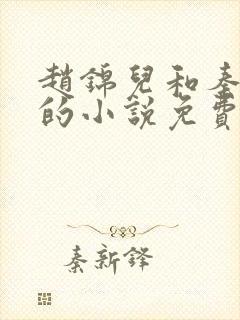 趙錦兒和秦
的小說免費
秦新鋒